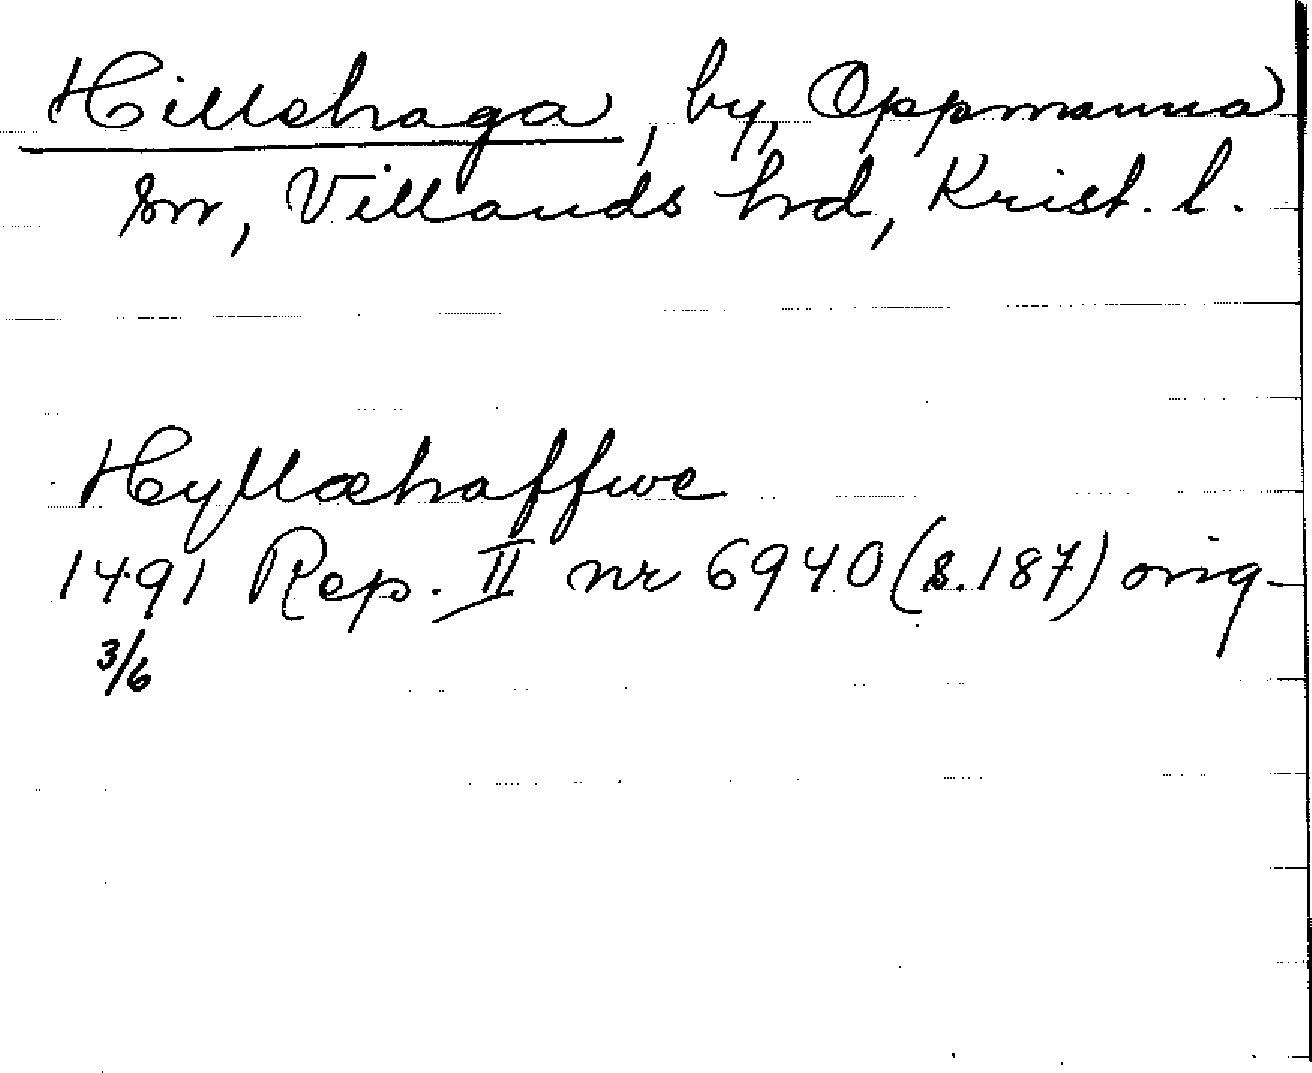 Hillshaga, by, Oppmanna
sn, Villands hrd, Krist. l.
Hyllæhaffwe
1491 Rep. II nr 6940 (s. 187) orig
3/6